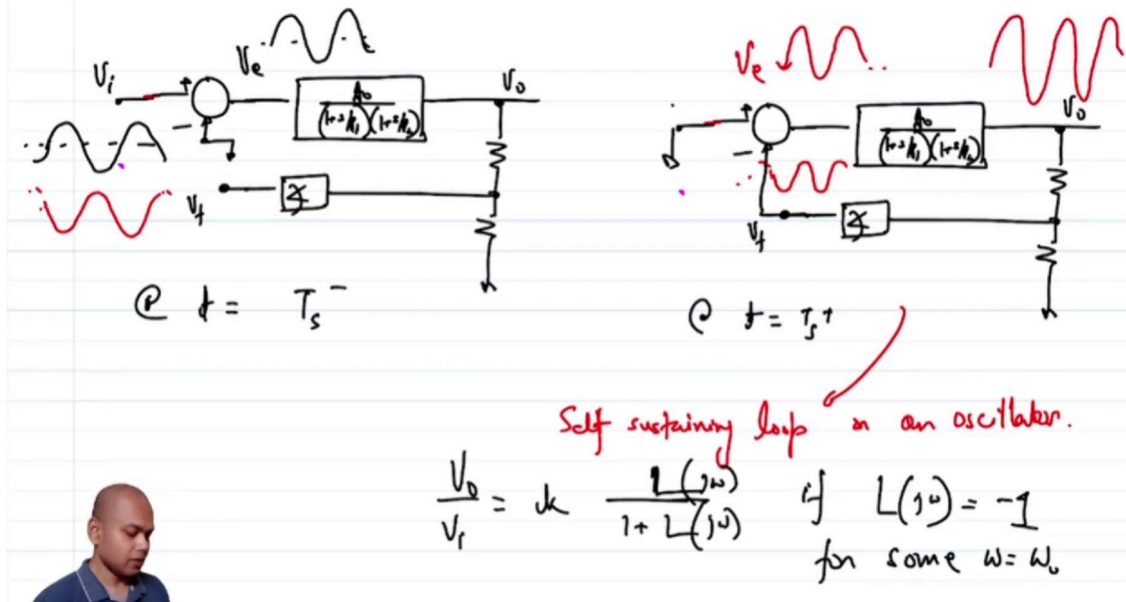 Vi + Ve Vo
A₀
(1+s/p₁)(1+s/p₂)
−
Vf
@ t = Ts⁻
Ve Vo
+
A₀
(1+s/p₁)(1+s/p₂)
−
Vf
@ t = Ts⁺
Self sustaining loop or an oscillator.
Vo/Vi = k L(jω)/(1+L(jω)) if L(jω) = -1
for some ω = ω₀